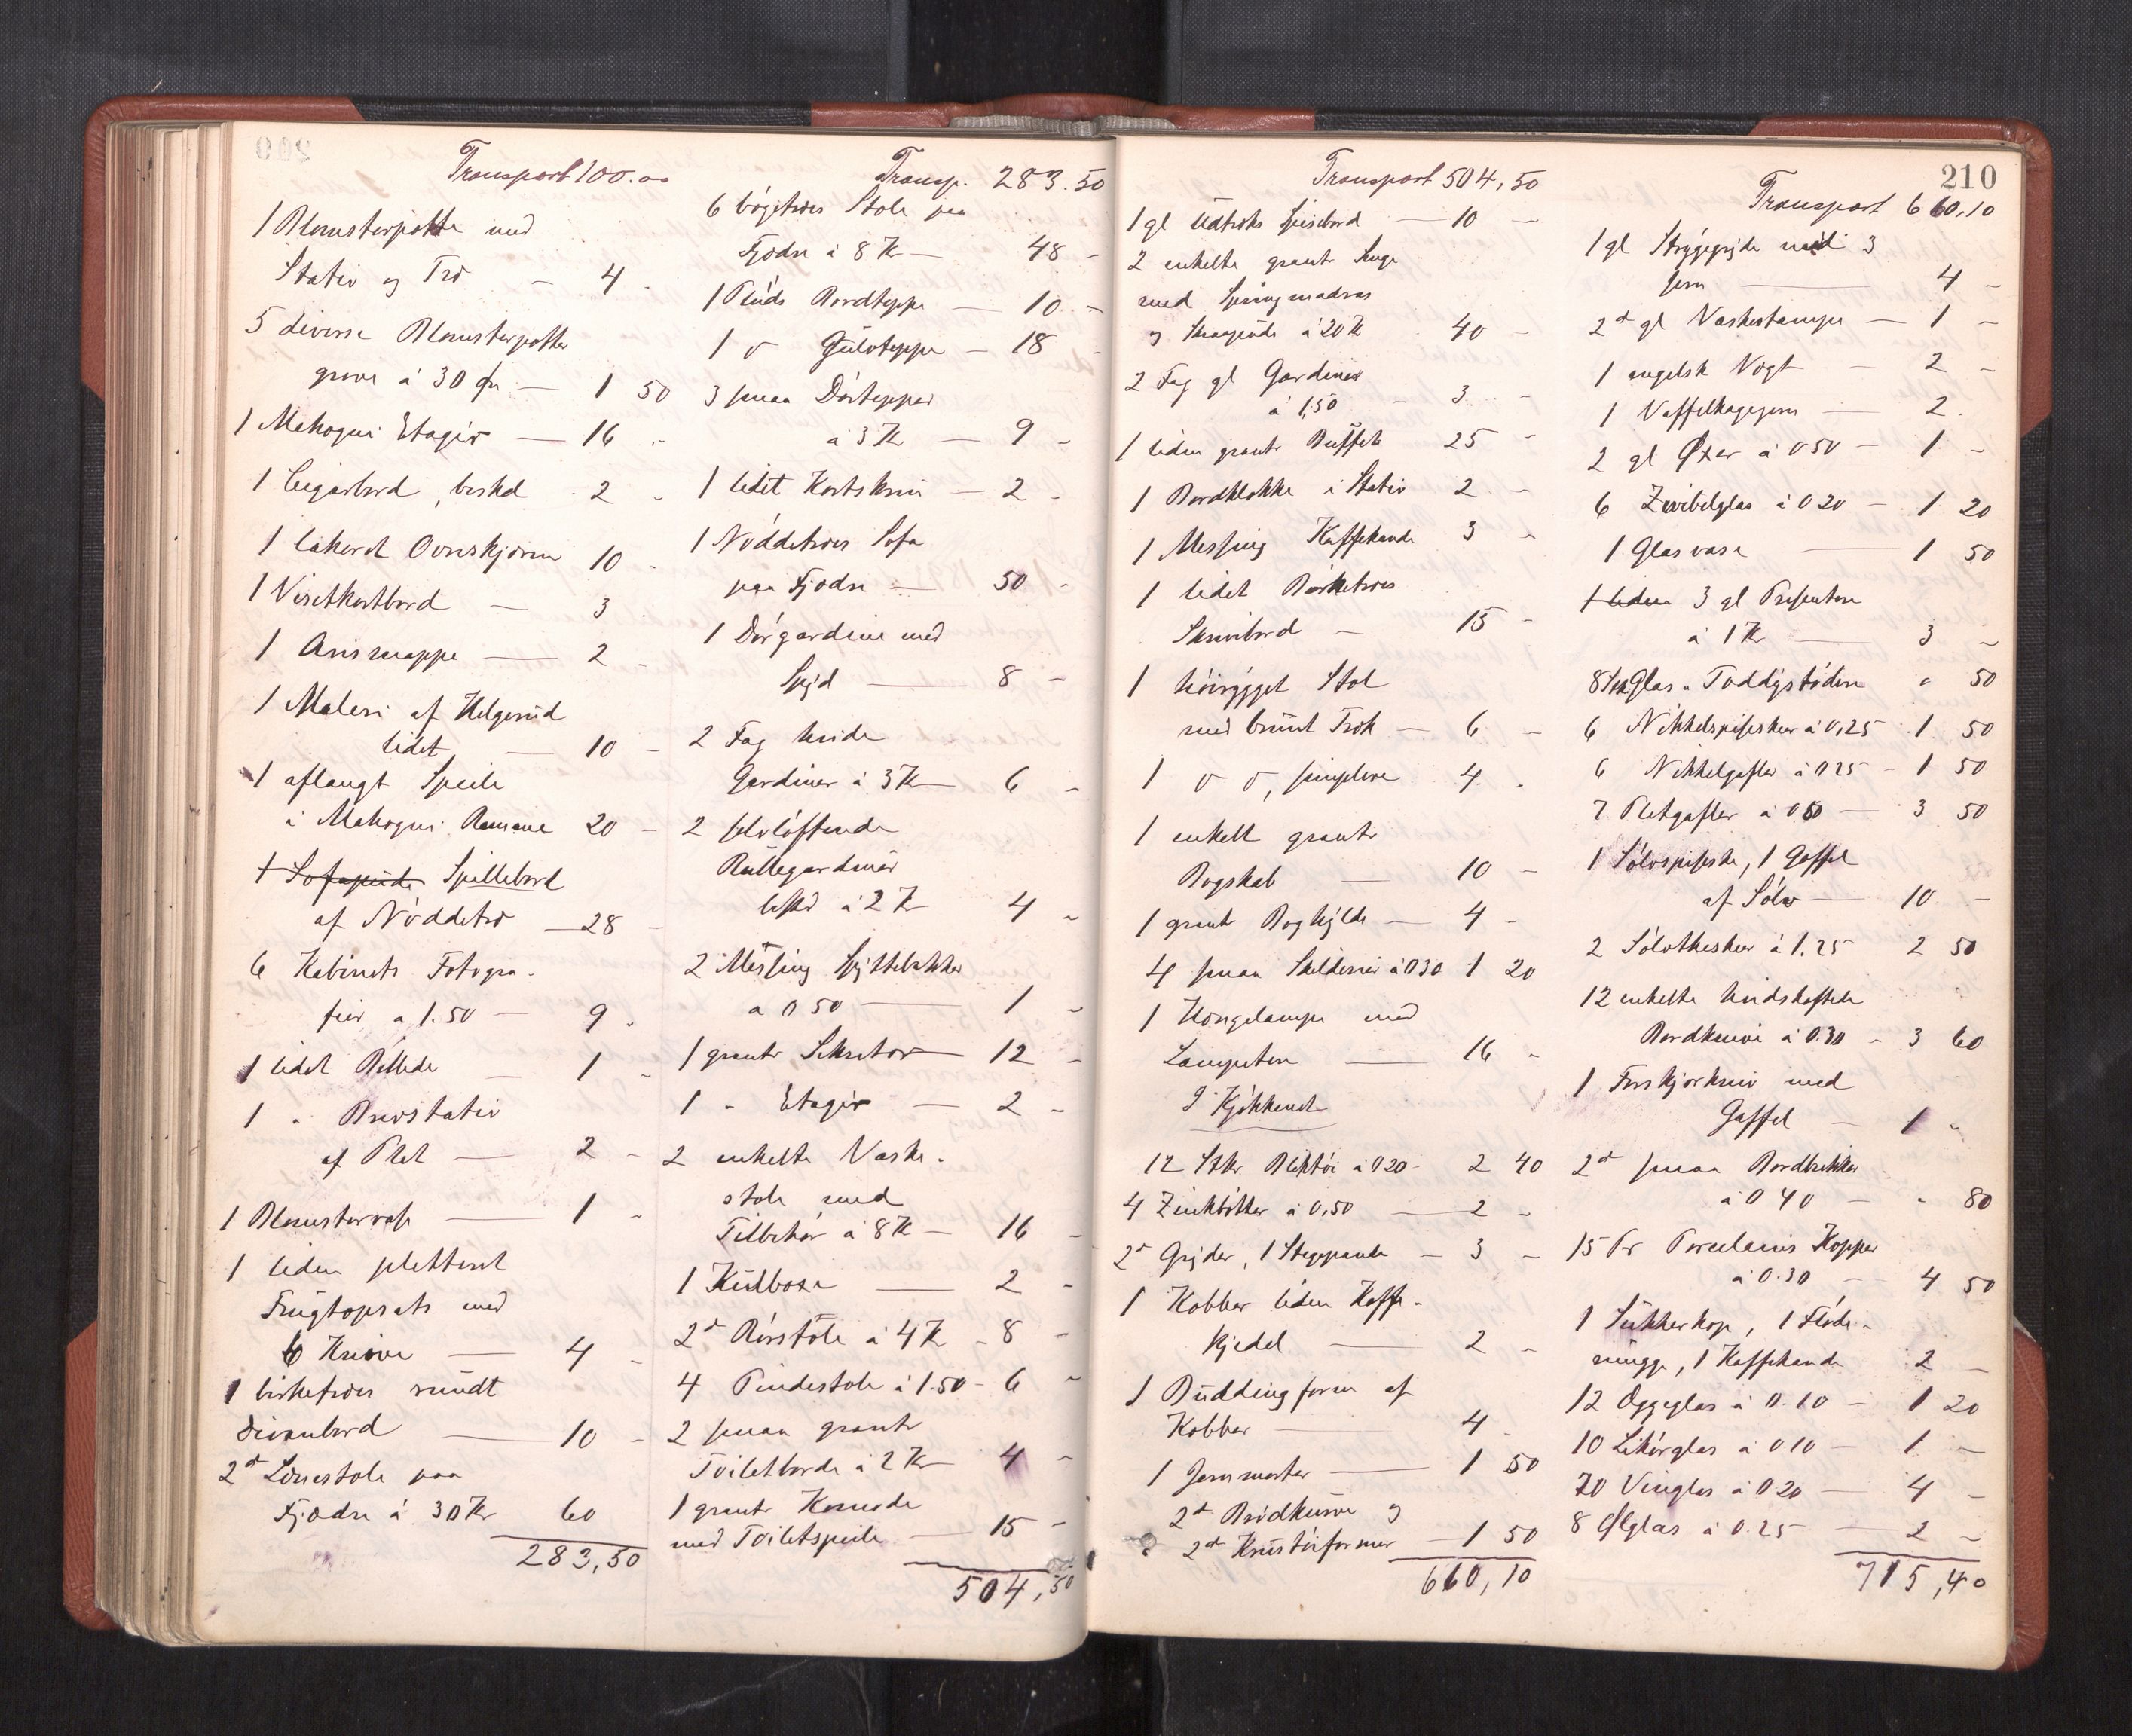 Transport 100.00
1 Blomsterpotte med
Stativ og Træ - 4 -
5 diverse Blomsterpotter
grove á 30 Øre - 1 50
1 Mahogni Etagér - 16 -
1 Cigarbord, besk. 2 -
1 lakeret Ovnskjærm 10 -
1 Visitkortbord - 3 -
1 Avismappe - 2 -
1 Maleri af Helgerud
lidet - 10 -
1 aflangt Speile
i Mahogni Ramme 20 -
1 Sofapude Spillebord
af Nøddetræ - 28 -
6 Kabinets Fotogra-
fier a 1.50 - 9 -
1 lidet Billede - 1 -
1 " Brevstativ
af Plet - 2 -
1 Blomstervase - 1 -
1 liden pletteret
Frugtopsats med
6 Knive - 4 -
1 birketræs rundt
Divanbord - 10 -
2de Lænestole paa
Fjædre á 30 Kr 60
283,50
Transp. 283.50
6 bøgetræs Stole paa
Fjædre á 8 Kr - 48 -
1 Pluds Bordteppe - 10 -
1 do Gulvteppe - 18 -
3 smaa Dørtepper
á 3 Kr - 9 -
1 lidet Kortskrin - 2 -
1 Nøddetræs Sofa
paa Fjædre - 50 -
1 Dørgardine med
Spyd - 8 -
2 Fag hvide
Gardiner á 3 Kr - 6 -
2 selvløftende
Rullegardiner
besk. á 2 Kr 4 -
2 Messing Spyttebakker
a 0 50 - 1 -
1 grantr Sekretær - 12 -
1 " Etagér - 2 -
2 enkelte Vaske-
stole med
Tilbehør á 8 Kr - 16 -
1 Kulboxe - 2 -
2de Rørstole á 4 Kr - 8 -
4 Pindestole á 1.50 - 6 -
2 smaa grantr
Toiletborde á 2 Kr 4 -
1 grantr Komode
med Toiletspeile - 15 -
504,50
210
Transport 504,50
1 gl Udtræks Spisebord - 10 -
2 enkelte grantr Senge
med Springmadras
og Skraapude á 20 Kr 40 -
2 Fag gl Gardiner
á 1,50 - 3 -
1 liden grantr Buffet 25 -
1 Bordklokke i Stativ 2 -
1 Messing Kaffekande 3 -
1 lidet Birketræs
Skrivebord - 15 -
1 høirygget Stol
med brunt Træk - 6 -
1 do do, simplere 4 -
1 enkelt grantr
Bogskab - 10 -
1 grantr Boghylde - 4 -
4 smaa Skilderier á 0 30 1 20
1 Hængelampe med
Lampetere - 16 -
I Kjøkkenet
12 Stkr Bliktøi á 0 20 - 2 40
4 Zinkbøtter á 0,50 - 2 -
2de Gryder, 1 Stegepande - 3 -
1 Kobber liden Kaffe-
kjedel - 2 -
1 Buddingform af
Kobber - 4 -
1 Jernmorter - 1 50
2de Brødkurve og
2de Krustøiformer - 1 50
660,10
Transport 660,10
1 gl Strygegryde med 3
Jern - 4 -
2de gl Vaskestampe - 1 -
1 engelsk Vægt - 2 -
1 Vaffelkagejern - 2 -
2 gl Øxer á 0 50 - 1 -
6 Zwibelglas á 0 20 - 1 20
1 Glasvase - 1 50
1 liden 3 gl Presentere
á 1 Kr - 3 -
8 Stk Glas " Toddystødere " 50
6 Nikkelspiseskeer á 0,25 1 50
6 Nikkelgafler á 0 25 - 1 50
7 Pletgafler a 0 50 - 3 50
1 Sølvspiseske, 1 Gaffel
af Sølv - 10 -
2 Sølvtheskeer á 1.25 2 50
12 enkelte hvidskaftede
Bordknive á 0.30 - 3 60
1 Forskjærkniv med
Gaffel - 1 -
2de smaa Bordbrikker
á 0 40 - " 80
15 Pr Porcelains Kopper
á 0.30 - 4 50
1 Sukkerkop, 1 Fløde-
mugge, 1 Kaffekande 2 -
12 Æggeglas á 0.10 - 1 20
10 Likørglas á 0.10 - 1 -
20 Vinglas á 0 20 - 4 -
8 Ølglas á 0.25 - 2 -
715,40